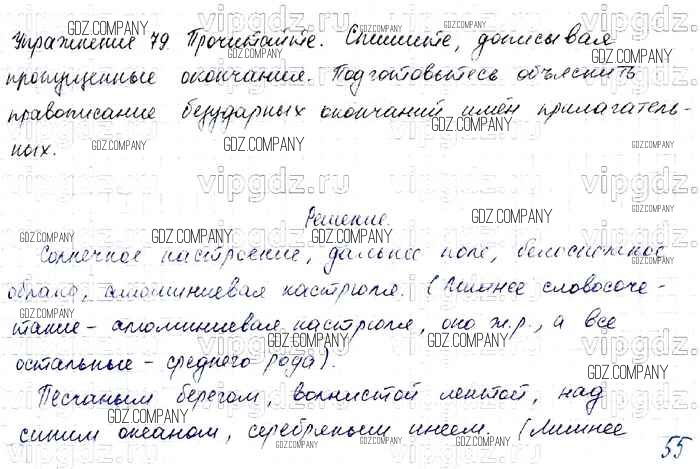 Упражнение 79. Прочитайте. Спишите, дописывая
пропущенные окончания. Подготовьтесь объяснить
правописание безударных окончаний имён прилагатель-
ных.
Решение.
Солнечное настроение, дальнее поле, белоснежное
облако, алюминиевая кастрюля. (Лишнее словосоче-
тание - алюминиевая кастрюля, оно ж.р., а все
остальные - среднего рода).
Песчаным берегом, волнистой лентой, над
синим океаном, серебряным инеем. (Лишнее
55